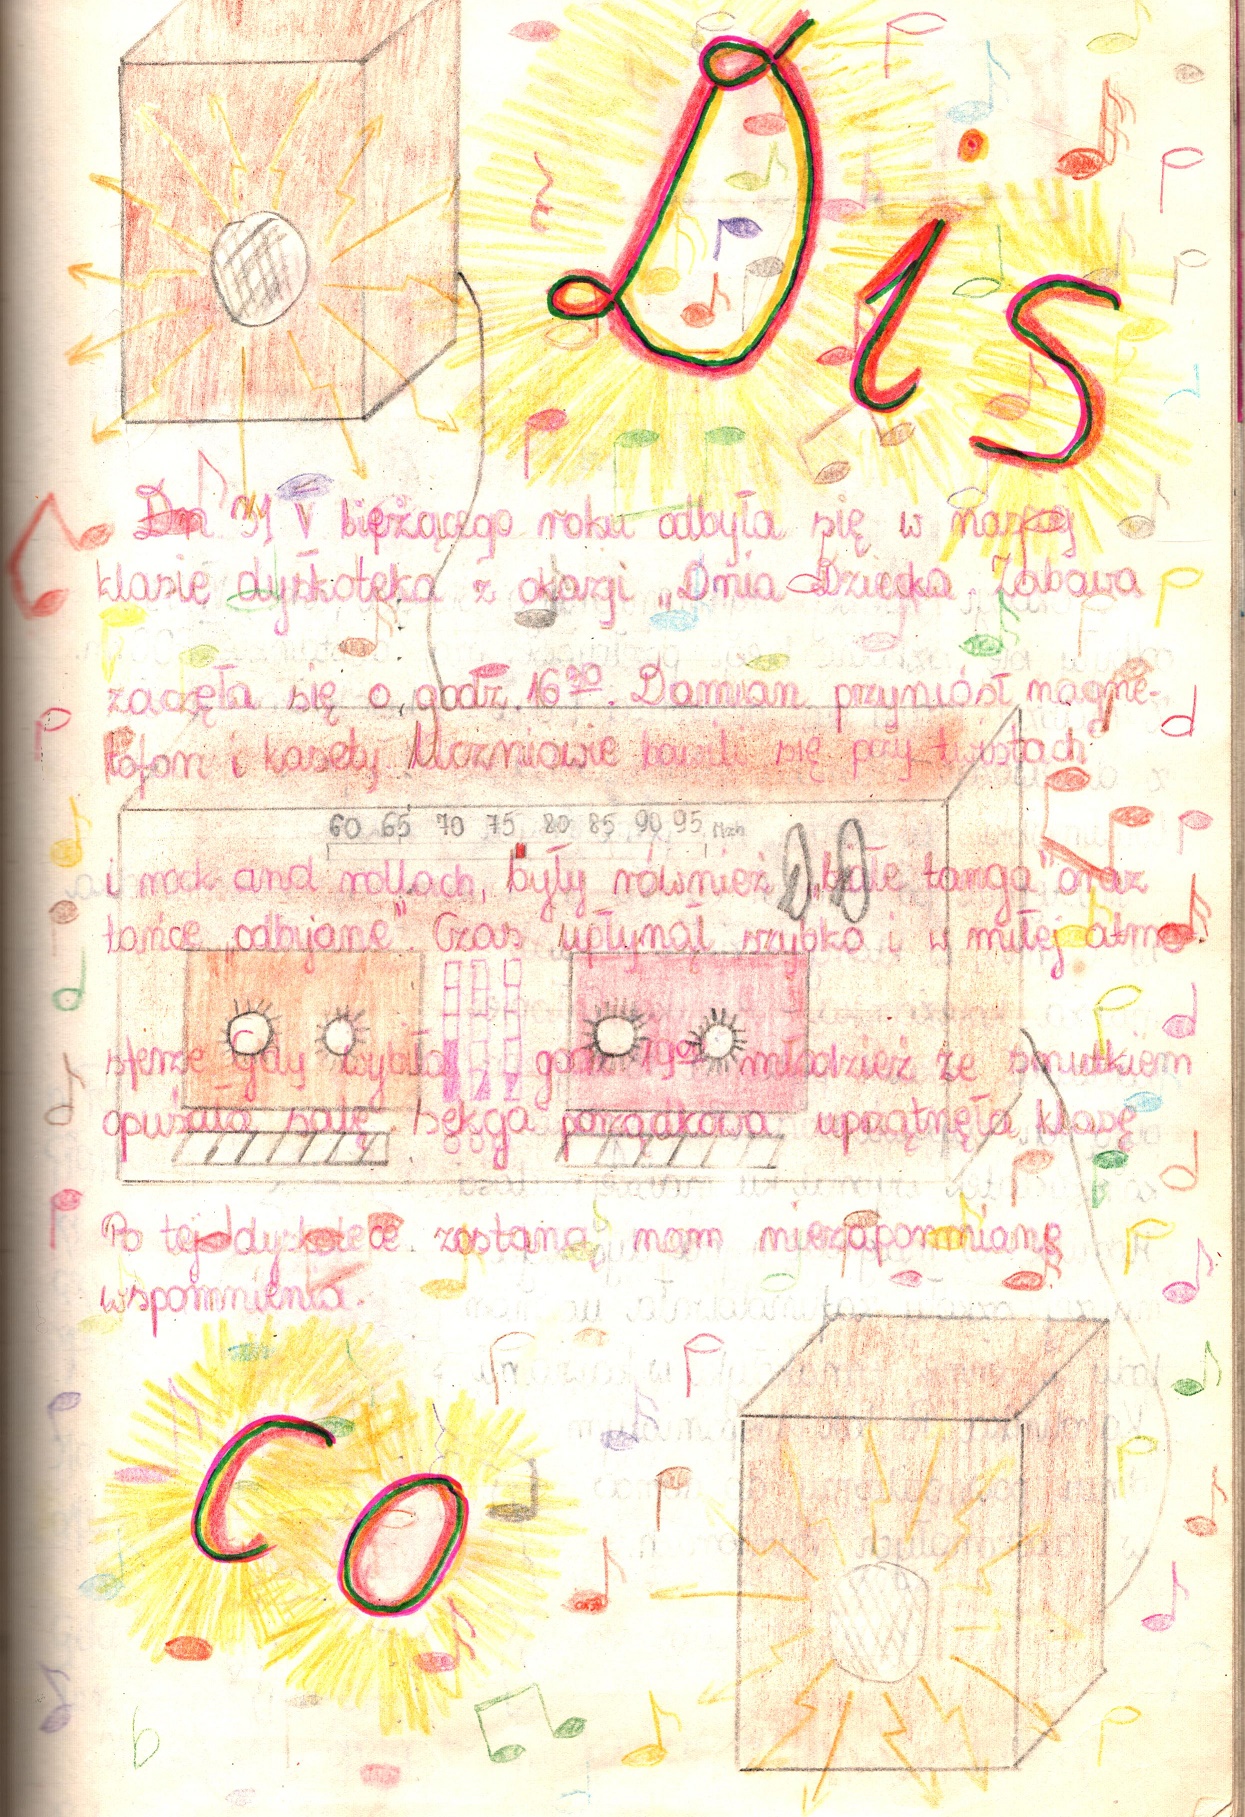 Dis
Dn 31 V bieżącego roku odbyła się w naszej
klasie dyskoteka z okazji „Dnia Dziecka. Zabawa
zaczęła się o godz. 16³⁰. Damian przyniósł magne-
tofon i kasety Uczniowie bawili się przy twistach
60 65 70 75 80 85 90 95 Mzh
i rock and rollach, były również „białe tanga" oraz
tańce „odbijane" Czas upłynął szybko i w miłej atmo
sferze gdy wybiła godz 19 młodzież ze smutkiem
opuszczała salę Sekcja porządkowa uprzątnęła klasę
Po tej dyskotece zostaną nam niezapomniane
wspomnienia.
Co